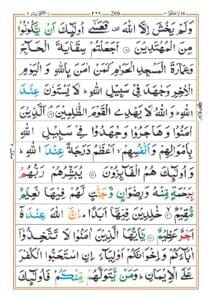 وَلَمْ يَخْشَ اِلَّا اللّٰهَ فَعَسٰٓى اُولٰٓئِكَ اَنْ يَّكُوْنُوْا
مِنَ الْمُهْتَدِيْنَ ۝ اَجَعَلْتُمْ سِقَايَةَ الْحَآجِّ
وَعِمَارَةَ الْمَسْجِدِ الْحَرَامِ كَمَنْ اٰمَنَ بِاللّٰهِ وَالْيَوْمِ
الْاٰخِرِ وَجٰهَدَ فِىْ سَبِيْلِ اللّٰهِ ؕ لَا يَسْتَوٗنَ عِنْدَ
اللّٰهِ ؕ وَاللّٰهُ لَا يَهْدِى الْقَوْمَ الظّٰلِمِيْنَ ۝ اَلَّذِيْنَ
اٰمَنُوْا وَهَاجَرُوْا وَجٰهَدُوْا فِىْ سَبِيْلِ اللّٰهِ
بِاَمْوَالِهِمْ وَاَنْفُسِهِمْ ۙ اَعْظَمُ دَرَجَةً عِنْدَ اللّٰهِ ؕ
وَاُولٰٓئِكَ هُمُ الْفَآئِزُوْنَ ۝ يُبَشِّرُهُمْ رَبُّهُمْ
بِرَحْمَةٍ مِّنْهُ وَرِضْوَانٍ وَّجَنّٰتٍ لَّهُمْ فِيْهَا نَعِيْمٌ
مُّقِيْمٌ ۝ خٰلِدِيْنَ فِيْهَاۤ اَبَدًا ؕ اِنَّ اللّٰهَ عِنْدَهٗۤ
اَجْرٌ عَظِيْمٌ ۝ يٰۤاَيُّهَا الَّذِيْنَ اٰمَنُوْا لَا تَتَّخِذُوْۤا
اٰبَآءَكُمْ وَاِخْوَانَكُمْ اَوْلِيَآءَ اِنِ اسْتَحَبُّوا الْكُفْرَ
عَلَى الْاِيْمَانِ ؕ وَمَنْ يَّتَوَلَّهُمْ مِّنْكُمْ فَاُولٰٓئِكَ